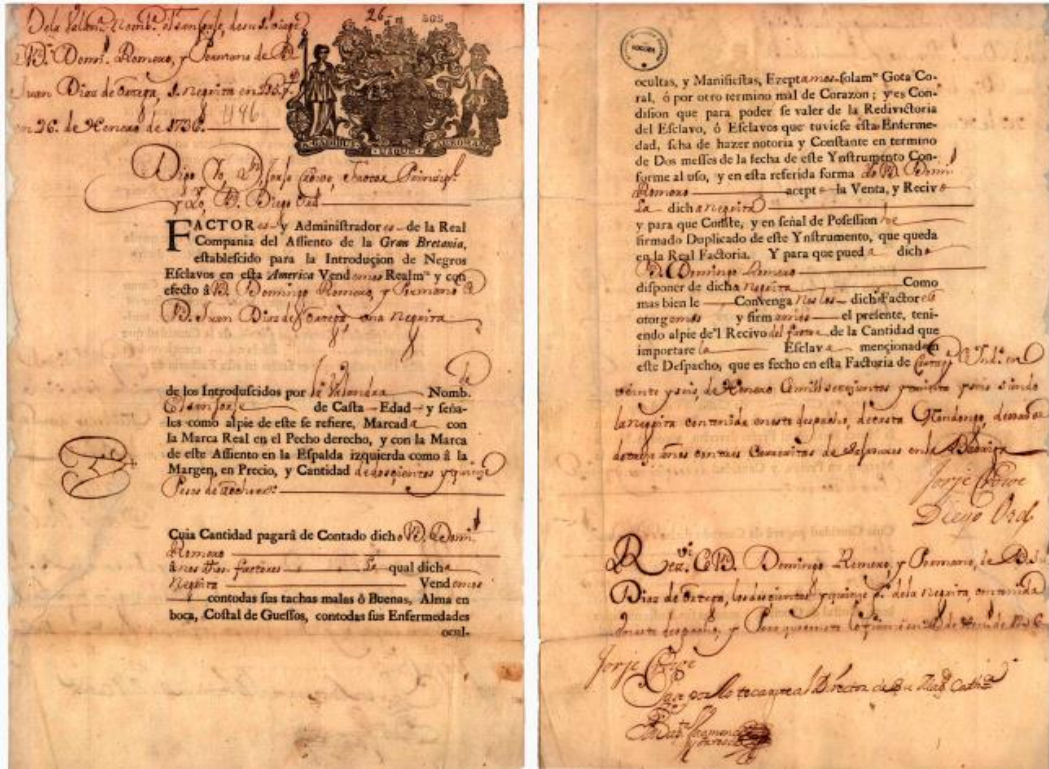 26
SOS
Juan Diaz de Ortega, 1. negrita en 215 p
en 26. de Henero de 1736.
1486
A GADIBUS USQUE AURORAM
Digo Yo, D. Jorje Crowe, Factor Principl
y Yo, D. Diego Ord
FACTORes y Administradores de la Real
Compania del Assiento de la Gran Bretania,
establescido para la Introduçion de Negros
Esclavos en esta America Vendemos Realmte y con
efecto â D. Domingo Romero, y Permano de
D. Juan Diaz de Ortega, una negrita
de los Introduscidos por la Valandra Nomb.
de Casta Edad y seña-
les como alpie de este se refiere, Marcada con
la Marca Real en el Pecho derecho, y con la Marca
de este Assiento en la Espalda izquierda como â la
Margen, en Precio, y Cantidad de doscientos y quinze
Pesos de aocho rs
Cuia Cantidad pagarâ de Contado dicho D. Domi
Romero
â nos dhos factores qual dicha
Negrita Vendemos
contodas sus tachas malas ô Buenas, Alma en
boca, Costal de Guessos, contodas sus Enfermedades
ocul-
ocultas, y Manifiestas, Ezeptamos solamte Gota Co-
ral, ô por otro termino mal de Corazon; y es Con-
dision que para poder se valer de la Redivictoria
del Esclavo, ô Esclavos que tuviese esta Enferme-
dad, scha de hazer notoria y Constante en termino
de Dos messes de la fecha de este Ynstrumento Con-
forme al uso, y en esta referida forma D. Domi
Romero acepte la Venta, y Recive
La dicha negrita
y para que Conste, y en señal de Possession he
firmado Duplicado de este Ynstrumento, que queda
en la Real Factoria. Y para que pueda dicho
D. Domingo Romero
disponer de dicha negrita Como
mas bien le Convenga Nos los dich Factores
otorgamos y firmamos el presente, teni-
endo alpie de'l Recivo del factor de la Cantidad que
importare la Esclava mencionada en
este Despacho, que es fecho en esta Factoria de
veinte y seis de Henero de mill setecientos y treinta y seis siendo
la negrita contenida en este despacho, de casta
Jorje Crowe
Diego Ord
D. Domingo Romero, y Permano, de D. Jn
Diaz de Ortega, los doscientos y quinze p. de la negrita contenida
en este despacho, y Para que conste lo firmé en 26 de Hen. de 1736
Jorje Crowe
Pase por lo tocante al Director de Su Magd Cathca